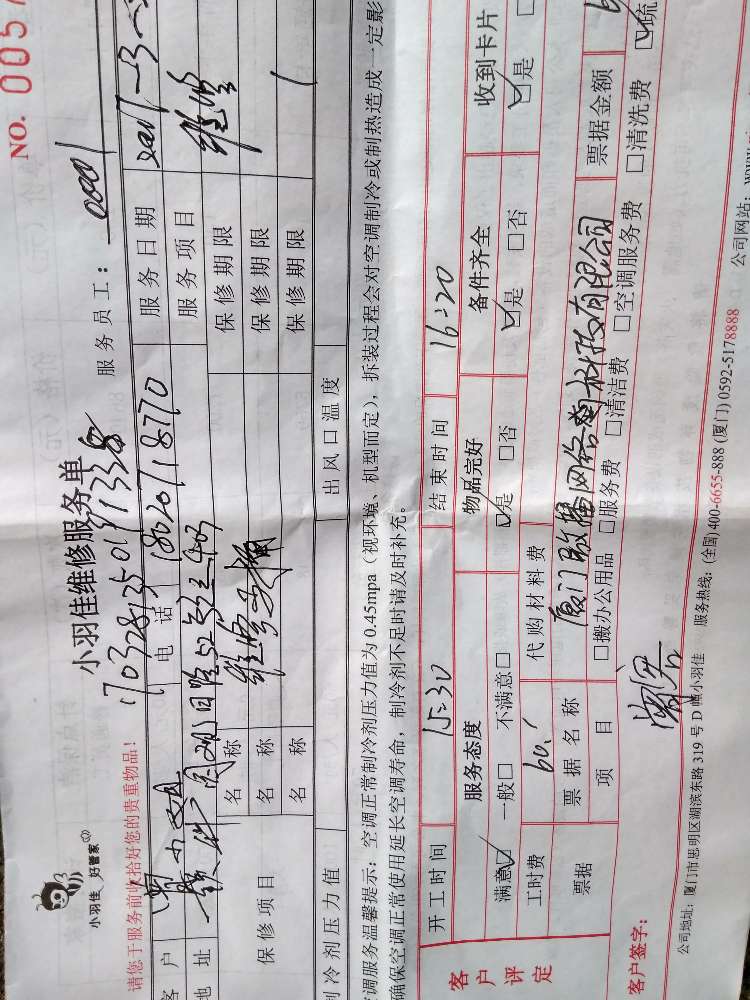 NO. 0057
小羽佳 好管家
小羽佳维修服务单
17032813501911338
请您于服务前收拾好您的贵重物品！
服务员工：
客户
电话 18020718770
服务日期
地址
服务项目 维修
保修项目
名称
保修期限
名称
保修期限
名称
保修期限
制冷剂压力值
出风口温度
空调服务温馨提示：空调正常制冷剂压力值为 0.45mpa（视环境、机型而定），拆装过程会对空调制冷或制热造成一定影
确保空调正常使用延长空调寿命，制冷剂不足时请及时补充。
客户评定
开工时间 15:30 结束时间 16:20
服务态度 物品完好 备件齐全 收到卡片
满意☑ 一般□ 不满意□ ☑是 □否 ☑是 □否 ☑是
工时费 代购材料费 票据金额
票据 票据名称 厦门
项目 □搬办公用品 □服务费 □清洁费 □空调服务费 □清洗费 ☑疏
客户签字：
公司地址：厦门市思明区湖滨东路 319 号 D 幢小羽佳 服务热线：(全国)400-6655-888 (厦门) 0592-5178888 公司网站：www.